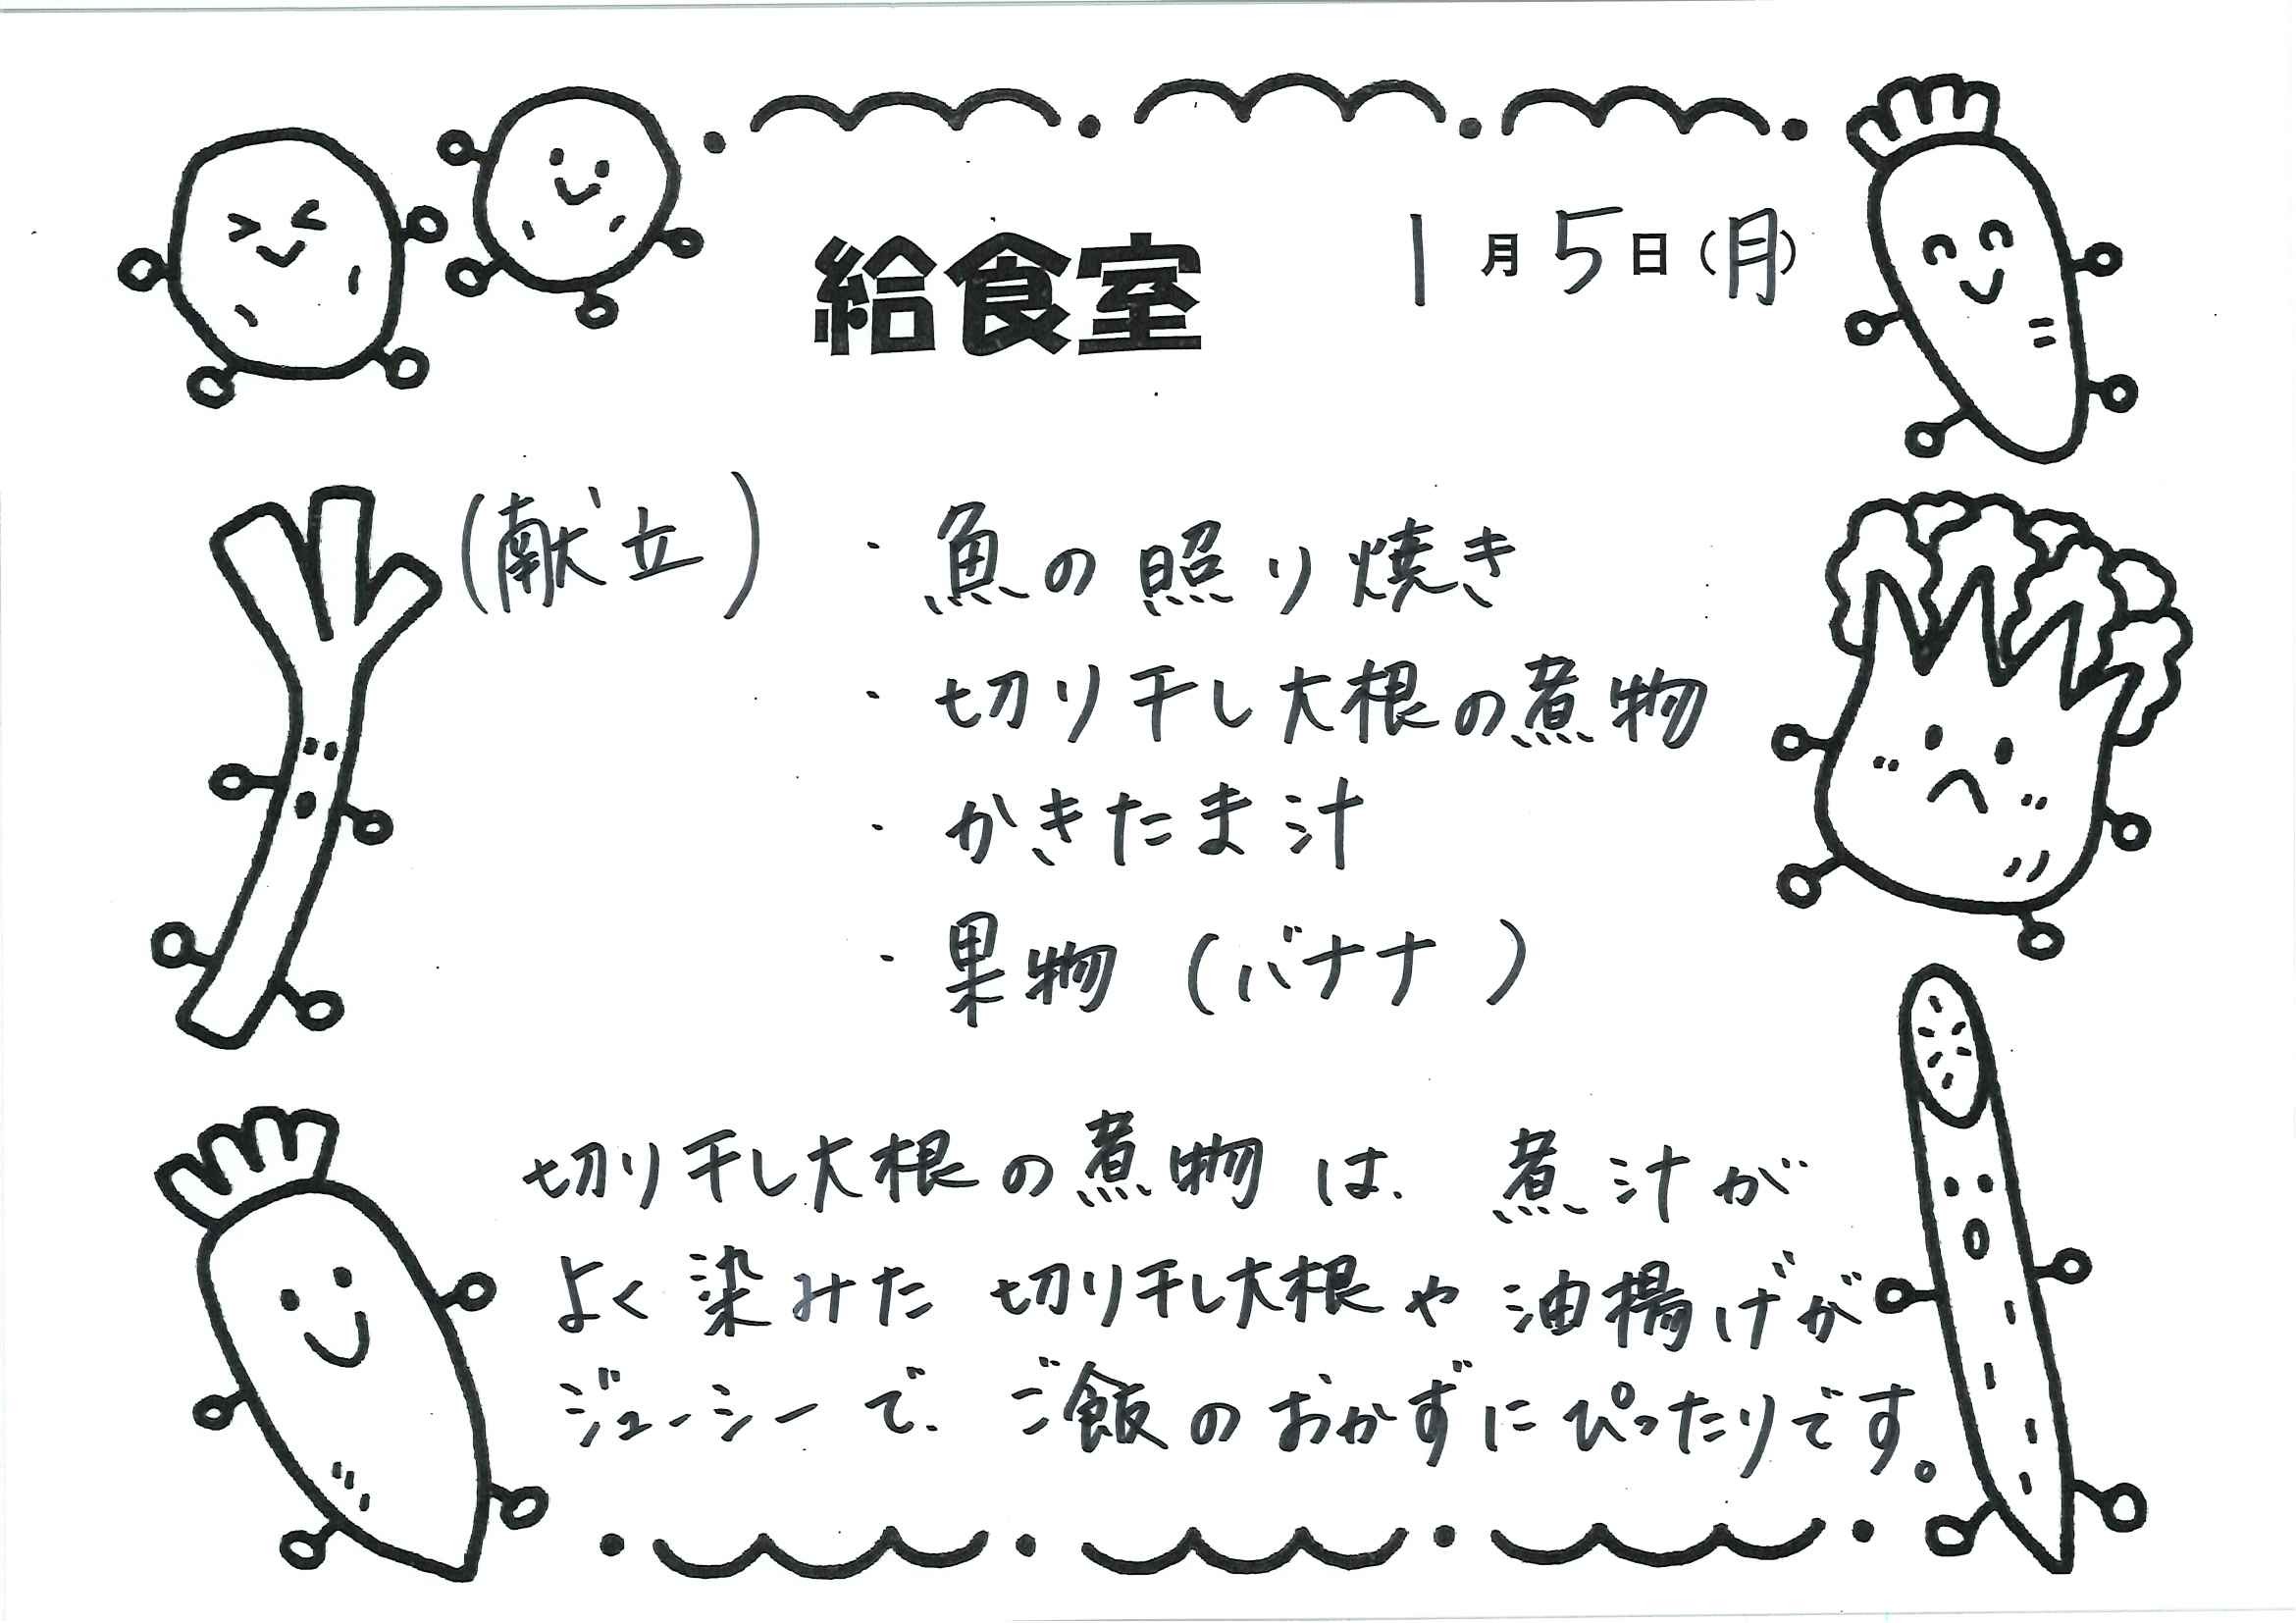 給食室
1月5日(月)
(献立)
・魚の照り焼き
・切り干し大根の煮物
・かきたま汁
・果物(バナナ)
切り干し大根の煮物は、煮汁が
よく染みた切り干し大根や油揚げが
ジューシーで、ご飯のおかずにぴったりです。